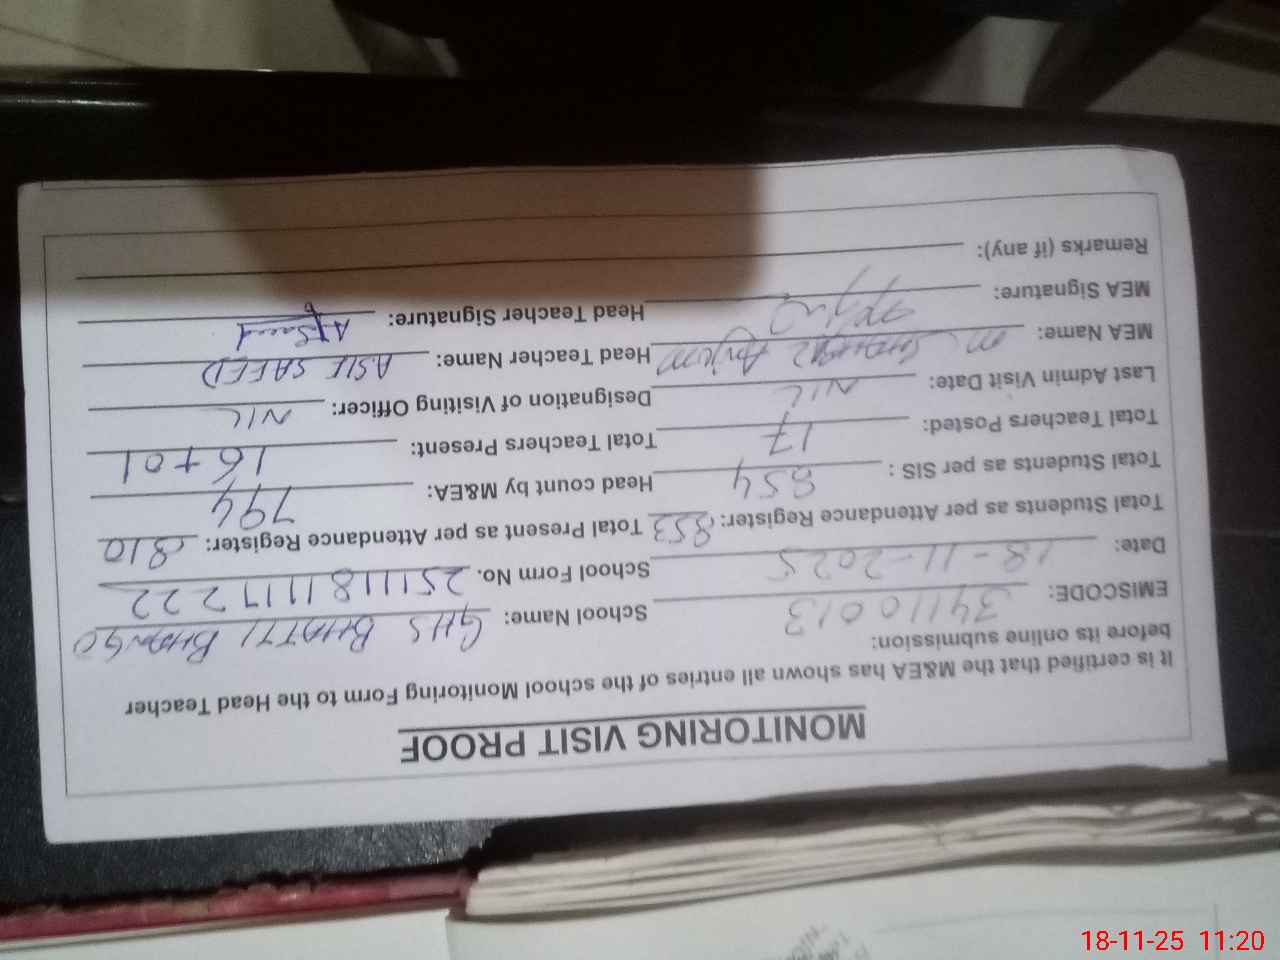 MONITORING VISIT PROOF
It is certified that the M&EA has shown all entries of the school Monitoring Form to the Head Teacher
before its online submission:
EMISCODE: 34110013 School Name: GHS BHATTI BHANGO
Date: 18-11-2025 School Form No. 251118111722 2
Total Students as per Attendance Register: 853 Total Present as per Attendance Register: 810
Total Students as per SIS : 854 Head count by M&EA: 794
Total Teachers Posted: 17 Total Teachers Present: 16+01
Last Admin Visit Date: NIL Designation of Visiting Officer: NIL
MEA Name: M Anjum Head Teacher Name: ASIF SAEED
MEA Signature: Head Teacher Signature: A Saeed
Remarks (if any):
18-11-25 11:20